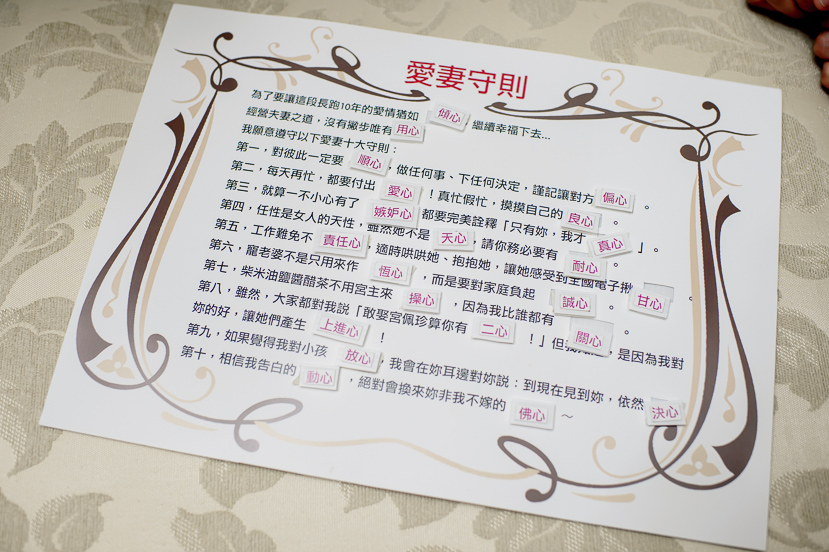 愛妻守則
為了要讓這段長跑10年的愛情猶如 傾心,繼續幸福下去...
經營夫妻之道,沒有撇步唯有 用心
我願意遵守以下愛妻十大守則:
第一,對彼此一定要 順心,做任何事、下任何決定,謹記讓對方 偏心 。
第二,每天再忙,都要付出 愛心 !真忙假忙,摸摸自己的 良心 。
第三,就算一不小心有了 嫉妒心 都要完美詮釋「只有妳,我才 真心 」。
第四,任性是女人的天性,雖然她不是 天心,請你務必要有 耐心 。
第五,工作難免不 責任心,適時哄哄她、抱抱她,讓她感受到全國電子揪 甘心 。
第六,寵老婆不是只用來作 恆心 ,而是要對家庭負起 誠心 。
第七,柴米油鹽醬醋茶不用宮主來 操心 ,因為我比誰都有 關心 。
第八,雖然,大家都對我說「敢娶宮佩珍算你有 二心 !」但我 ,是因為我對
妳的好,讓她們產生 上進心 !
第九,如果覺得我對小孩 放心 ,我會在妳耳邊對妳說:到現在見到妳,依然 決心
第十,相信我告白的 動心 ,絕對會換來妳非我不嫁的 佛心 ~